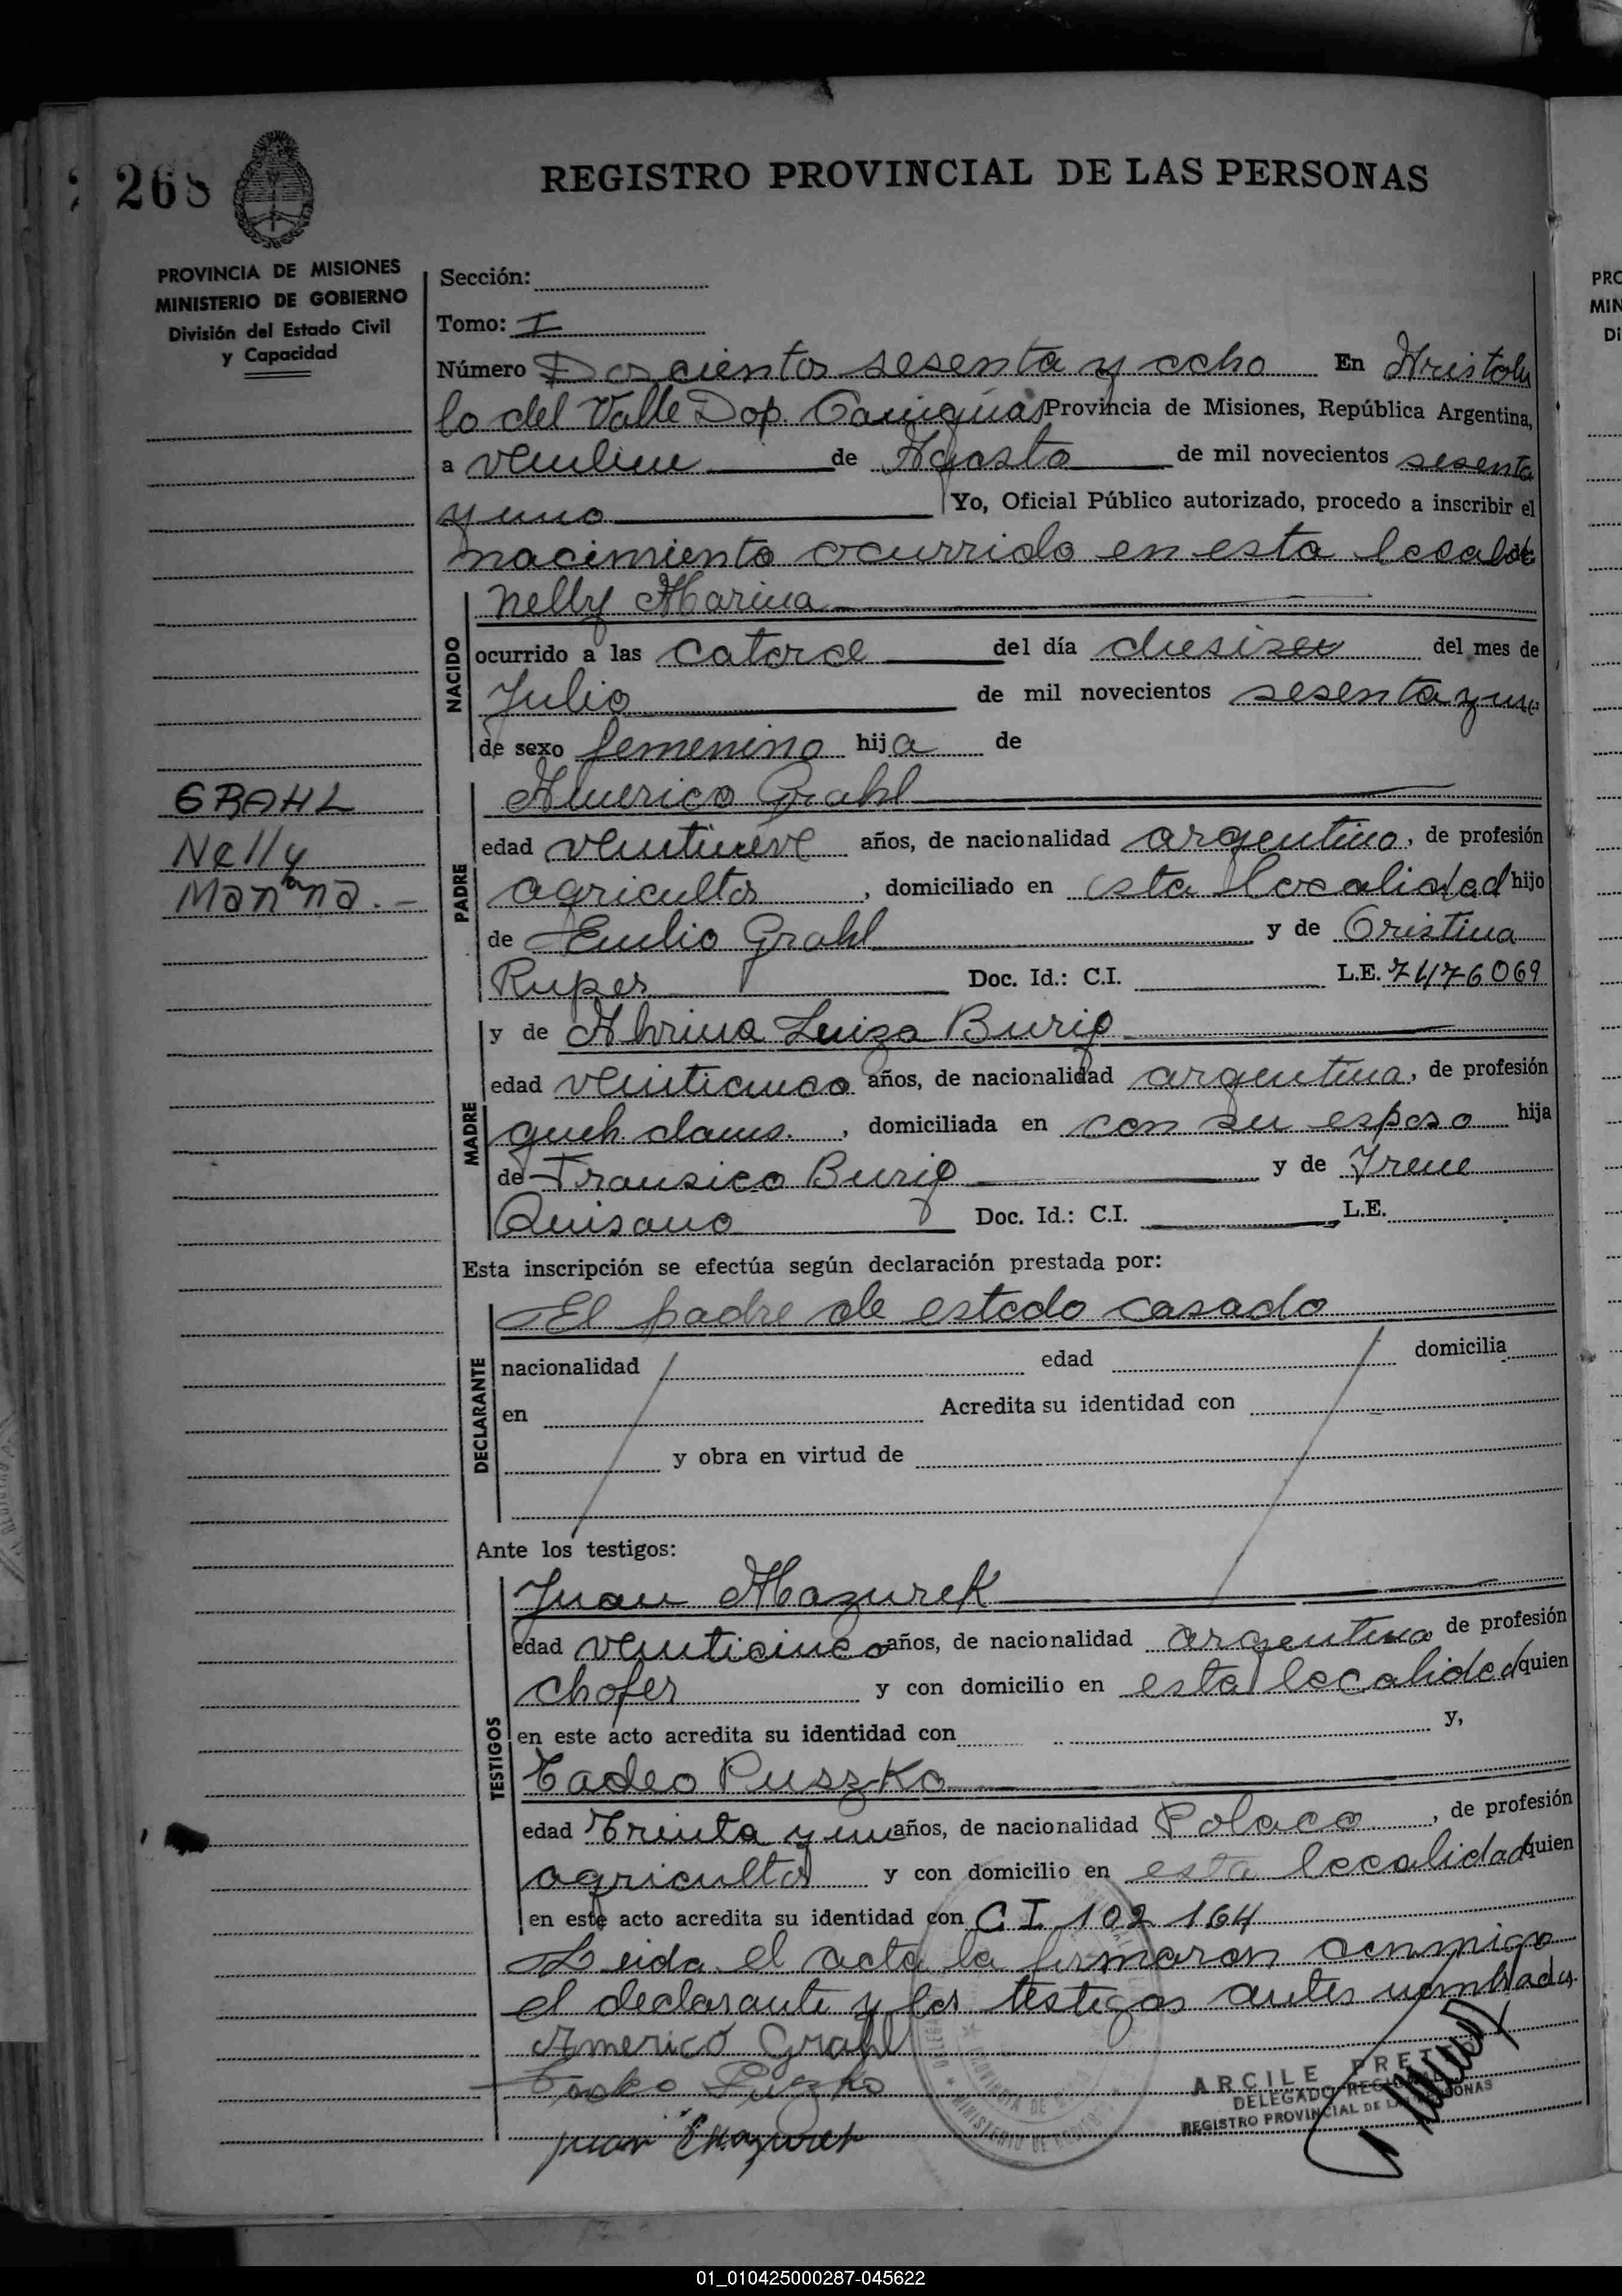 268
REGISTRO PROVINCIAL DE LAS PERSONAS
PROVINCIA DE MISIONES
MINISTERIO DE GOBIERNO
División del Estado Civil
y Capacidad
Sección:
Tomo: I
Número Doscientos sesenta y ocho En Aristobu
lo del Valle Dop. Cainguas Provincia de Misiones, República Argentina,
a de Agosto de mil novecientos sesenta
y uno Yo, Oficial Público autorizado, procedo a inscribir el
nacimiento ocurrido en esta localid de
NACIDO
Nelly Marina
ocurrido a las catorce del día del mes de
Julio de mil novecientos sesenta y uno
de sexo femenino hija de
GRAHL
Nelly
Marina.-
PADRE
Americo Grahl
edad años, de nacionalidad argentino, de profesión
agricultor, domiciliado en esta localidad hijo
de Emilio Grahl y de Cristina
Ruper Doc. Id.: C.I. L.E. 7476069
MADRE
y de Luiza Burig
edad venticinco años, de nacionalidad argentina, de profesión
queh. doms., domiciliada en con su esposo hija
de Fransico Burig y de Irene
Quisano Doc. Id.: C.I. L.E.
Esta inscripción se efectúa según declaración prestada por:
DECLARANTE
El padre de estado casado
nacionalidad edad domicilia
en Acredita su identidad con
y obra en virtud de
Ante los testigos:
TESTIGOS
Juan Mazurek
edad venticinco años, de nacionalidad argentino de profesión
chofer y con domicilio en esta localidad quien
en este acto acredita su identidad con y,
Tadeo Puszko
edad Treinta y un años, de nacionalidad Polaco, de profesión
agricultor y con domicilio en esta localidad quien
en este acto acredita su identidad con C I 102 164
Leida el acta la firmaron conmigo
el declarante y los testigos antes nombrados
Americo Grahl
Tadeo Puszko
Juan Mazurek
ARCILE PRETTO
DELEGADO REGIONAL
REGISTRO PROVINCIAL DE LAS PERSONAS
PRO
MIN
Di
01_010425000287-045622